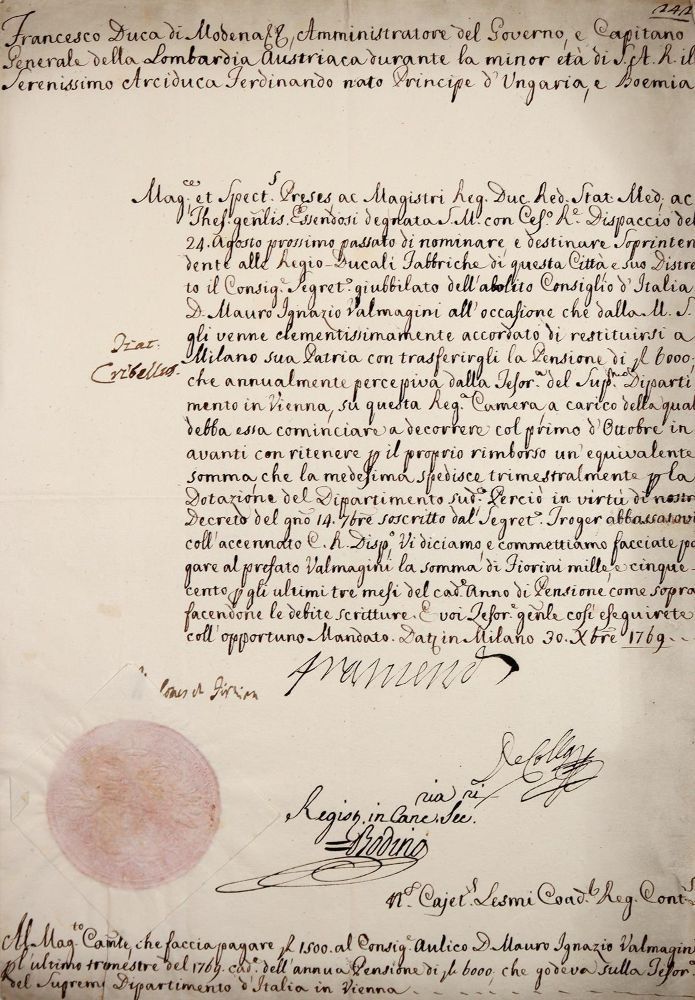 242
Francesco Duca di Modena &c, Amministratore del Governo, e Capitano
Generale della Lombardia Austriaca durante la minor età di S. A. R. il
Serenissimo Arciduca Ferdinando nato Principe d'Ungaria, e Boemia
Mag.ce et Spect.s Preses, ac Magistri Reg. Duc. Red. Stat. Med., ac
Thes. gen̄lis. Essendosi degnata S. M. con Ces.o R.e Dispaccio del
24. Agosto prossimo passato di nominare, e destinare Soprinten
dente alle Regio-Ducali Fabbriche di questa Città e suo Distret
to il Consig.e Segret.o giubbilato dell'abolito Consiglio d'Italia
D. Mauro Ignazio Valmagini all'occasione che dalla M. S.
gli venne clementissimamente accordato di restituirsi a
Milano sua Patria con trasferirgli la Pensione di f. 6000.
che annualmente percepiva dalla Tesor.a del Sup.mo Diparti
mento in Vienna, su questa Reg.a Camera, a carico della qual
debba essa cominciare a decorrere col primo d'Ottobre in
avanti con ritenere p il proprio rimborso un'equivalente
somma che la medesima spedisce trimestralmente p la
Dotazione del Dipartimento sud.o Perciò in virtù di nostro
Decreto del gno 14. 7bre soscritto dal Segret.o Troger abbassatovi
coll'accennato C. R. Disp.o Vi diciamo, e commettiamo facciate pa
gare al prefato Valmagini la somma di Fiorini mille, e cinque-
cento p gli ultimi tre mesi del cad.e Anno di Pensione come sopra
facendone le debite scritture. E voi Tesor.e gen̄le così eseguirete
coll'opportuno Mandato. Dat. in Milano 30. Xbre 1769.
Cribellus.
Comes de Firmian
De Colla
Regis. in Canc.ria Sec.ri
Bodino
N.s Cajet.s Lesmi Coad.r Reg. Cont.s
Al Mag.to Cam̄le, che faccia pagare f. 1500. al Consig.e Aulico D. Mauro Ignazio Valmagini
p l'ultimo trimestre del 1769. cad.e dell'annua Pensione di f. 6000. che godeva sulla Tesor.a
del Supremo Dipartimento d'Italia in Vienna